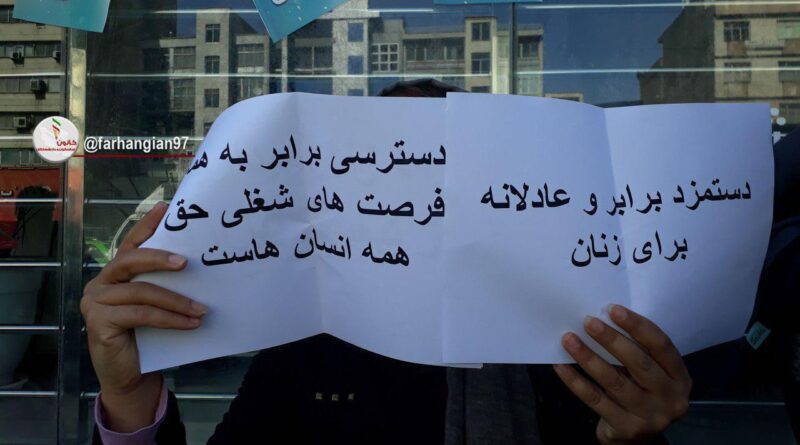 @farhangian97
کانون
دستمزد برابر و عادلانه
برای زنان
دسترسی برابر به
فرصت های شغلی حق
همه انسان هاست